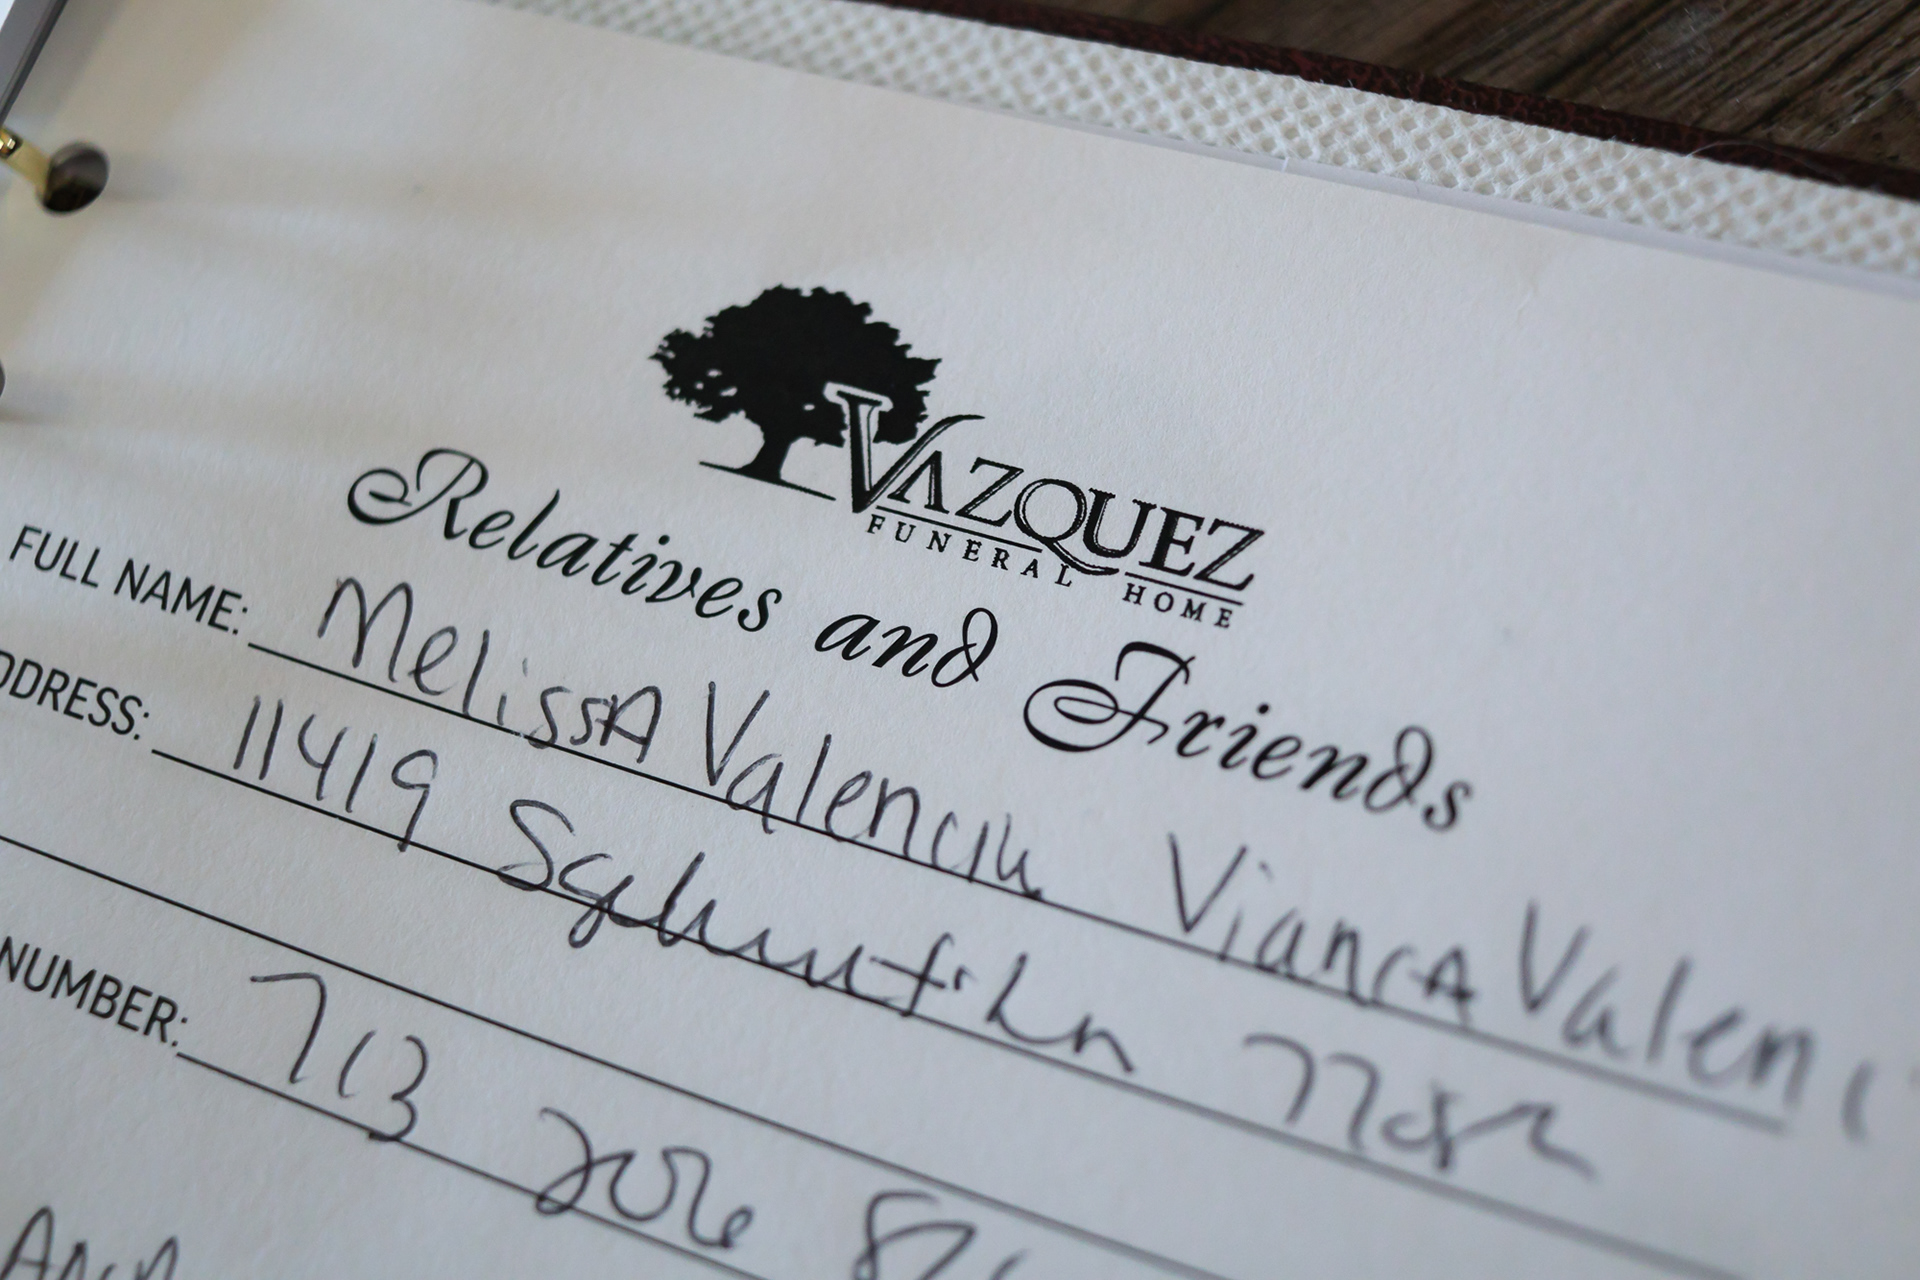 VAZQUEZ
FUNERAL HOME
Relatives and Friends
FULL NAME: MelissA Valencia ViancA Valenci
DDRESS: 11419 Ln
NUMBER: 713 206